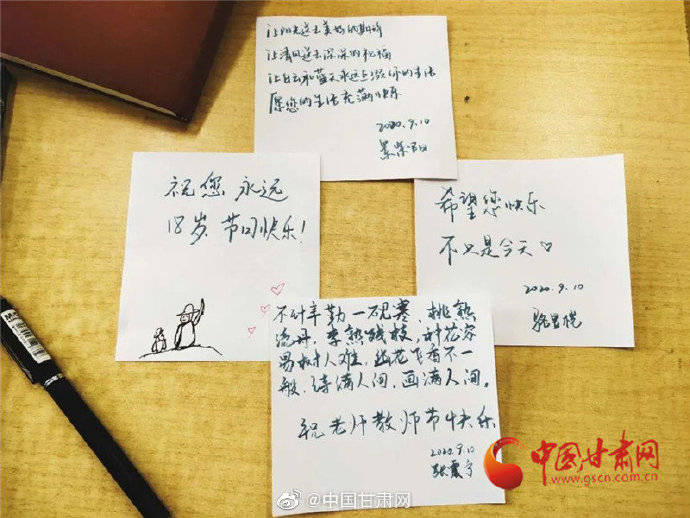 让阳光送去美好的期待
让清风送去深深的祝福
让白云和蓝天永远点缀你的生活
愿您的生活充满快乐
2020.9.10
祝您永远
18岁,节日快乐!
希望您快乐
不只是今天♡
2020.9.10
不计辛勤一砚寒 桃熟
流丹,李熟残枝,种花容
易树人难。幽花飞香不一
般,诗满人间,画满人间。
祝老师教师节快乐
2020.9.10
张震宇
中国甘肃网
www.gscn.com.cn
@中国甘肃网